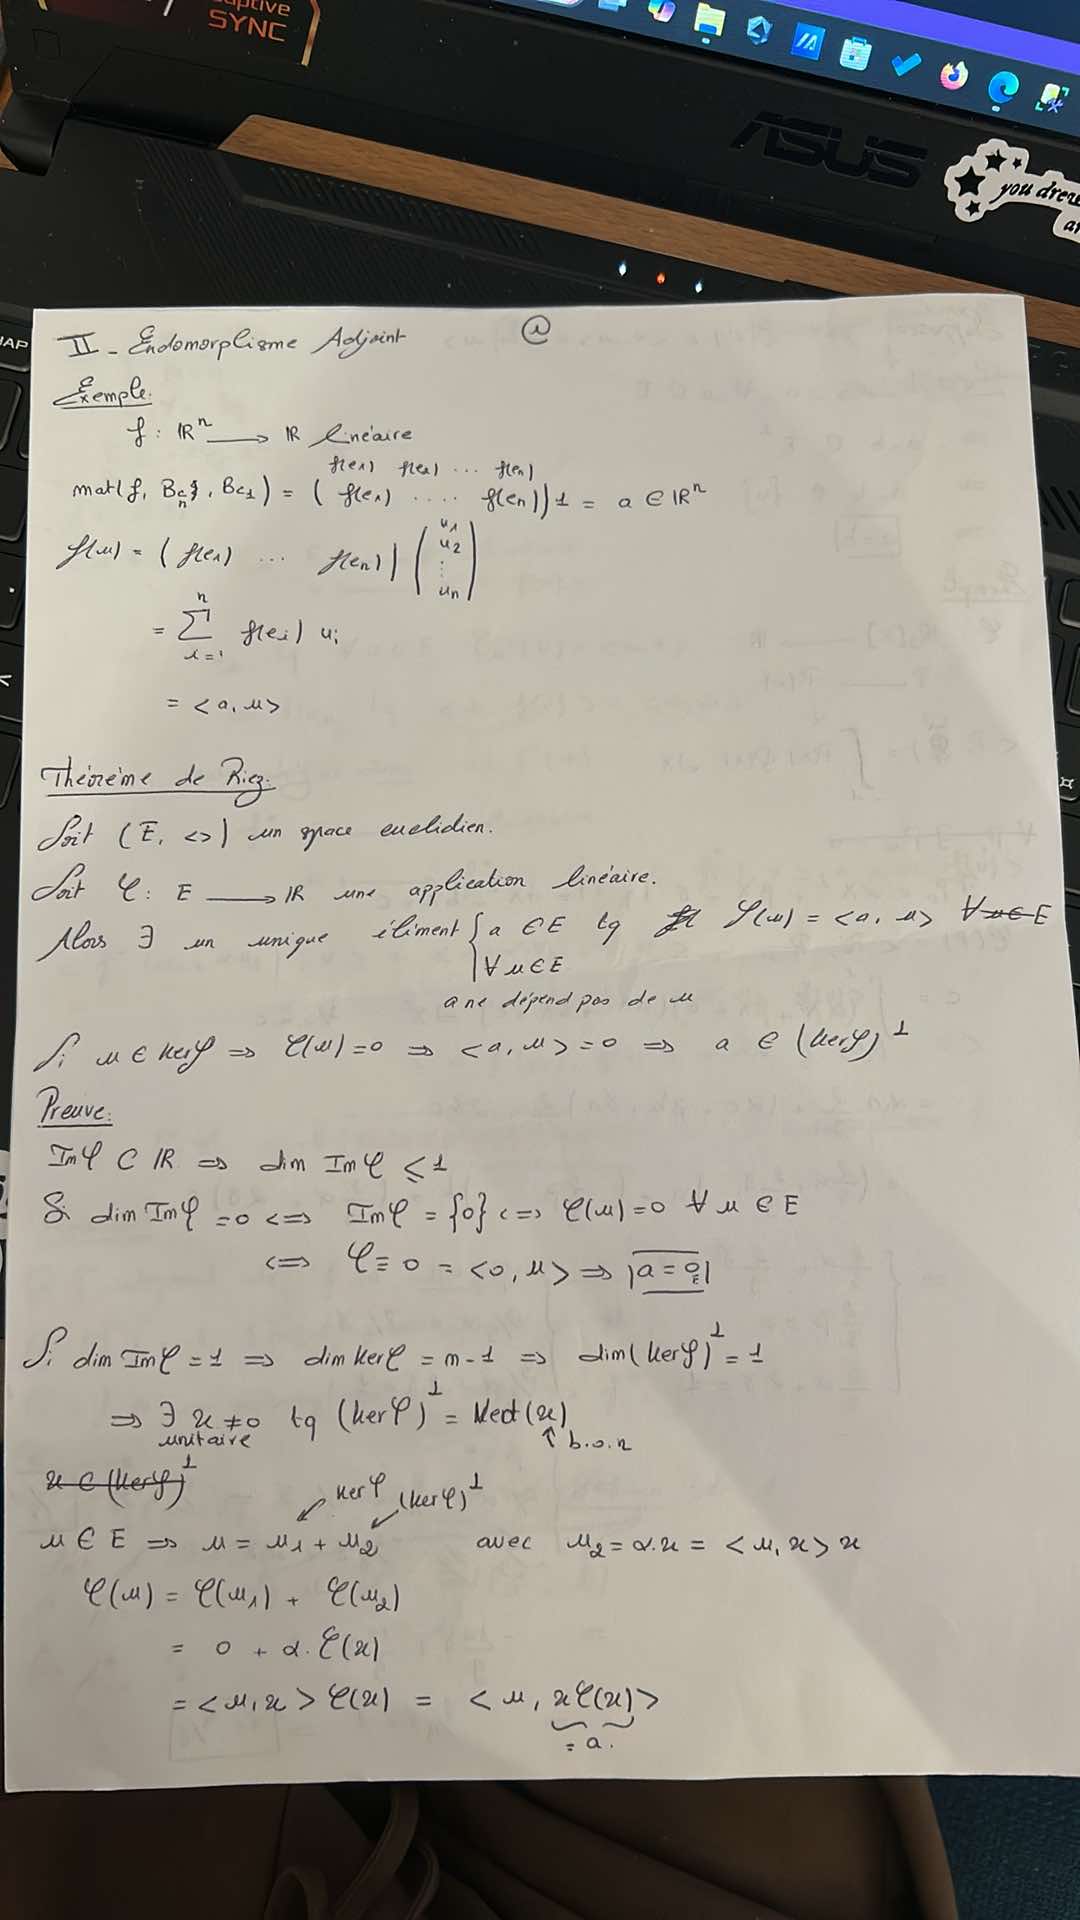 aptive
SYNC
ASUS
you drea
ar
HAP
II - Endomorplisme Adjoint
Exemple:
f: ℝⁿ ⟶ ℝ linéaire
f(e₁) f(e₂) ... f(en)
mat(f, Bcⁿ, Bc₁) = ( f(e₁) .... f(en)) 1 = a ∈ ℝⁿ
f(u) = ( f(e₁) ... f(en) ) ( u₁ u₂ ⋮ un )
= Σ_{i=1}^{n} f(ei) ui
= <a, u>
Théorème de Riez.
Soit (E, <>) un space euclidien.
Soit φ: E ⟶ ℝ une application linéaire.
Alors ∃ un unique élément { a ∈ E tq φ(u) = <a, u> ∀ u ∈ E
∀ u ∈ E
a ne dépend pas de u
Si u ∈ kerφ ⇒ φ(u)=0 ⇒ <a, u> = 0 ⇒ a ∈ (kerφ)^⊥
Preuve:
Imφ ⊂ ℝ ⇒ dim Imφ ≤ 1
Si dim Imφ = 0 ⟺ Imφ = {0} ⟺ φ(u)=0 ∀ u ∈ E
⟺ φ ≡ 0 = <0, u> ⇒ |a = 0_E|
Si dim Imφ = 1 ⇒ dim kerφ = n-1 ⇒ dim(kerφ)^⊥ = 1
⇒ ∃ x ≠ 0 tq (kerφ)^⊥ = Vect(x)
unitaire ↑ b.o.n
x ∈ (kerφ)^⊥
kerφ (kerφ)^⊥
u ∈ E ⇒ u = u₁ + u₂ avec u₂ = α.x = <u, x> x
φ(u) = φ(u₁) + φ(u₂)
= 0 + α. φ(x)
= <u, x> φ(x) = <u, xφ(x)>
= a.